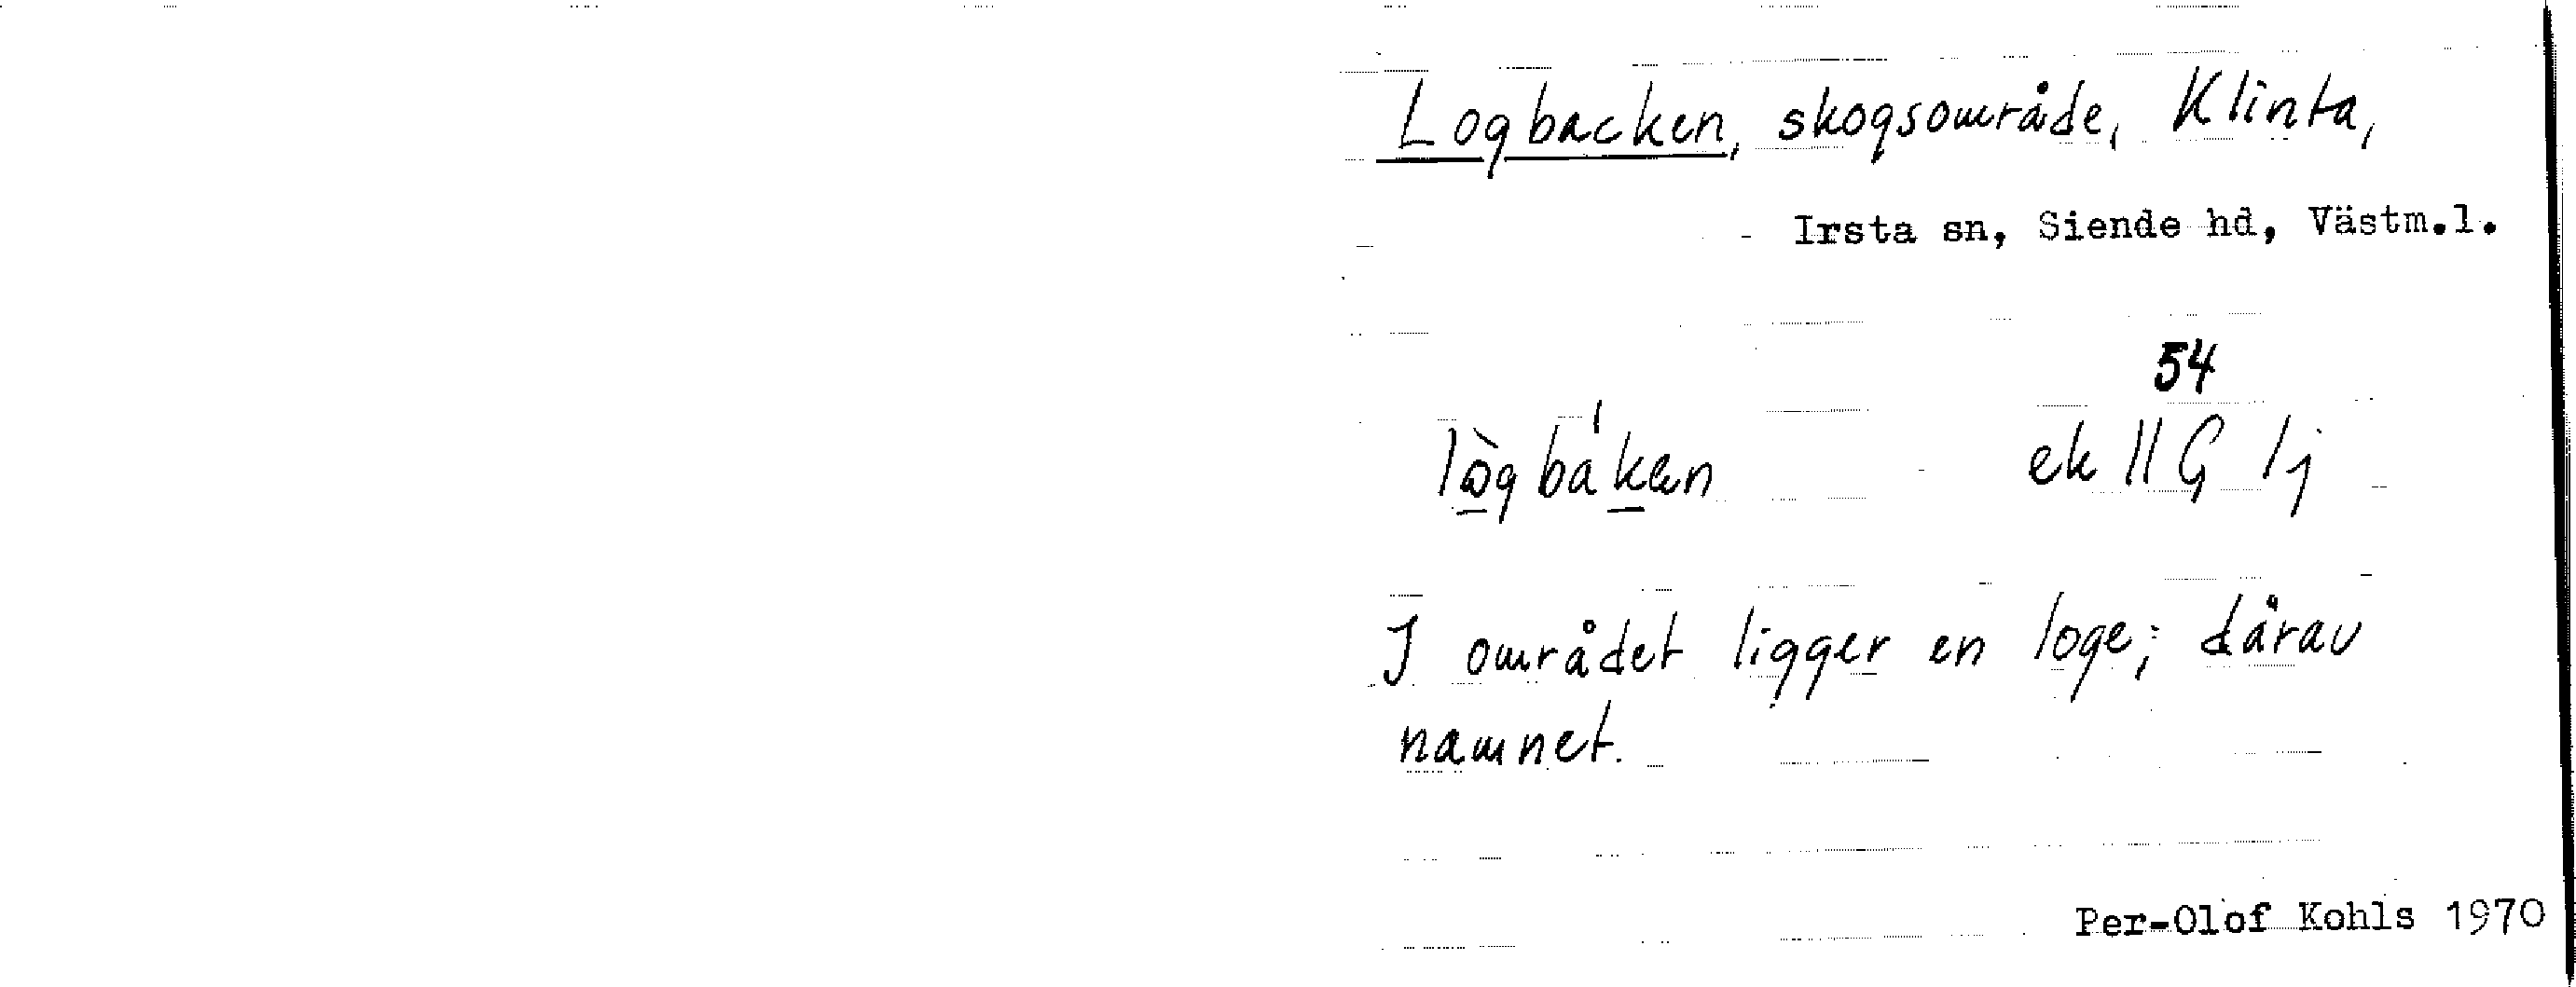 Logbacken, skogsområde, Klinta,
Irsta sn, Siende hd, Västm.l.
54
lògba'ken ek 11 G 1j
I området ligger en loge; därav
namnet.
Per-Olof Kohls 1970